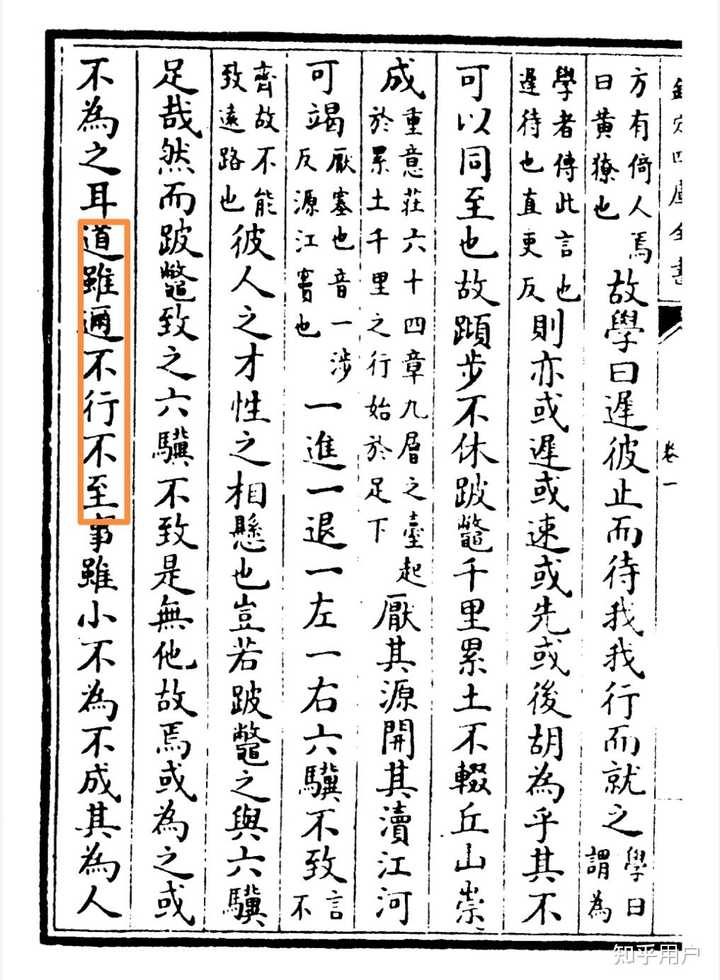 欽定四庫全書
卷一
方有倚人焉
曰黃獠也
故學曰遲彼止而待我我行而就之
學曰
謂為
學者傳此言也
遲待也直更反
則亦或遲或速或先或後胡為乎其不
可以同至也故蹞步不休跛鼈千里累土不輟丘山崇
成
重意莊六十四章九層之臺起
於累土千里之行始於足下
厭其源開其瀆江河
可竭
厭塞也音一涉
反源江竇也
一進一退一左一右六驥不致
言
不
齊故不能
致遠路也
彼人之才性之相懸也豈若跛鼈之與六驥
足哉然而跛鼈致之六驥不致是無他故焉或為之或
不為之耳道雖邇不行不至事雖小不為不成其為人
知乎用户